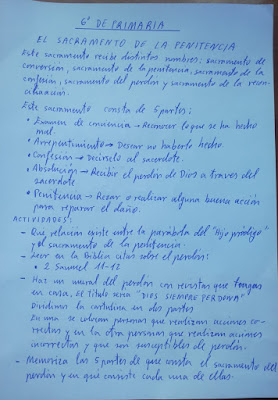 6º DE PRIMARIA
EL SACRAMENTO DE LA PENITENCIA
Este sacramento recibe distintos nombres: sacramento de
conversión, sacramento de la penitencia, sacramento de la
confesión, sacramento del perdón y sacramento de la recon-
ciliación.
Este sacramento consta de 5 partes:
• Examen de conciencia → Reconocer lo que se ha hecho
mal.
• Arrepentimiento → Desear no haberlo hecho.
• Confesión → Decírselo al sacerdote.
• Absolución → Recibir el perdón de Dios a través del
sacerdote
• Penitencia → Rezar o realizar alguna buena acción
para reparar el daño.
ACTIVIDADES:
- Qué relación existe entre la parábola del "Hijo pródigo"
y el sacramento de la penitencia.
- Leer en la Biblia citas sobre el perdón:
• 2 Samuel 11-12
- Haz un mural del perdón con revistas que tengas
en casa. El título sería "DIOS SIEMPRE PERDONA"
Dividimir la cartulina en dos partes
En una se colocan personas que realizan acciones co-
rrectas y en la otra personas que realizan acciones
incorrectas y que son susceptibles de perdón.
- Memoriza las 5 partes de que consta el sacramento del
perdón y en qué consiste cada una de ellas.